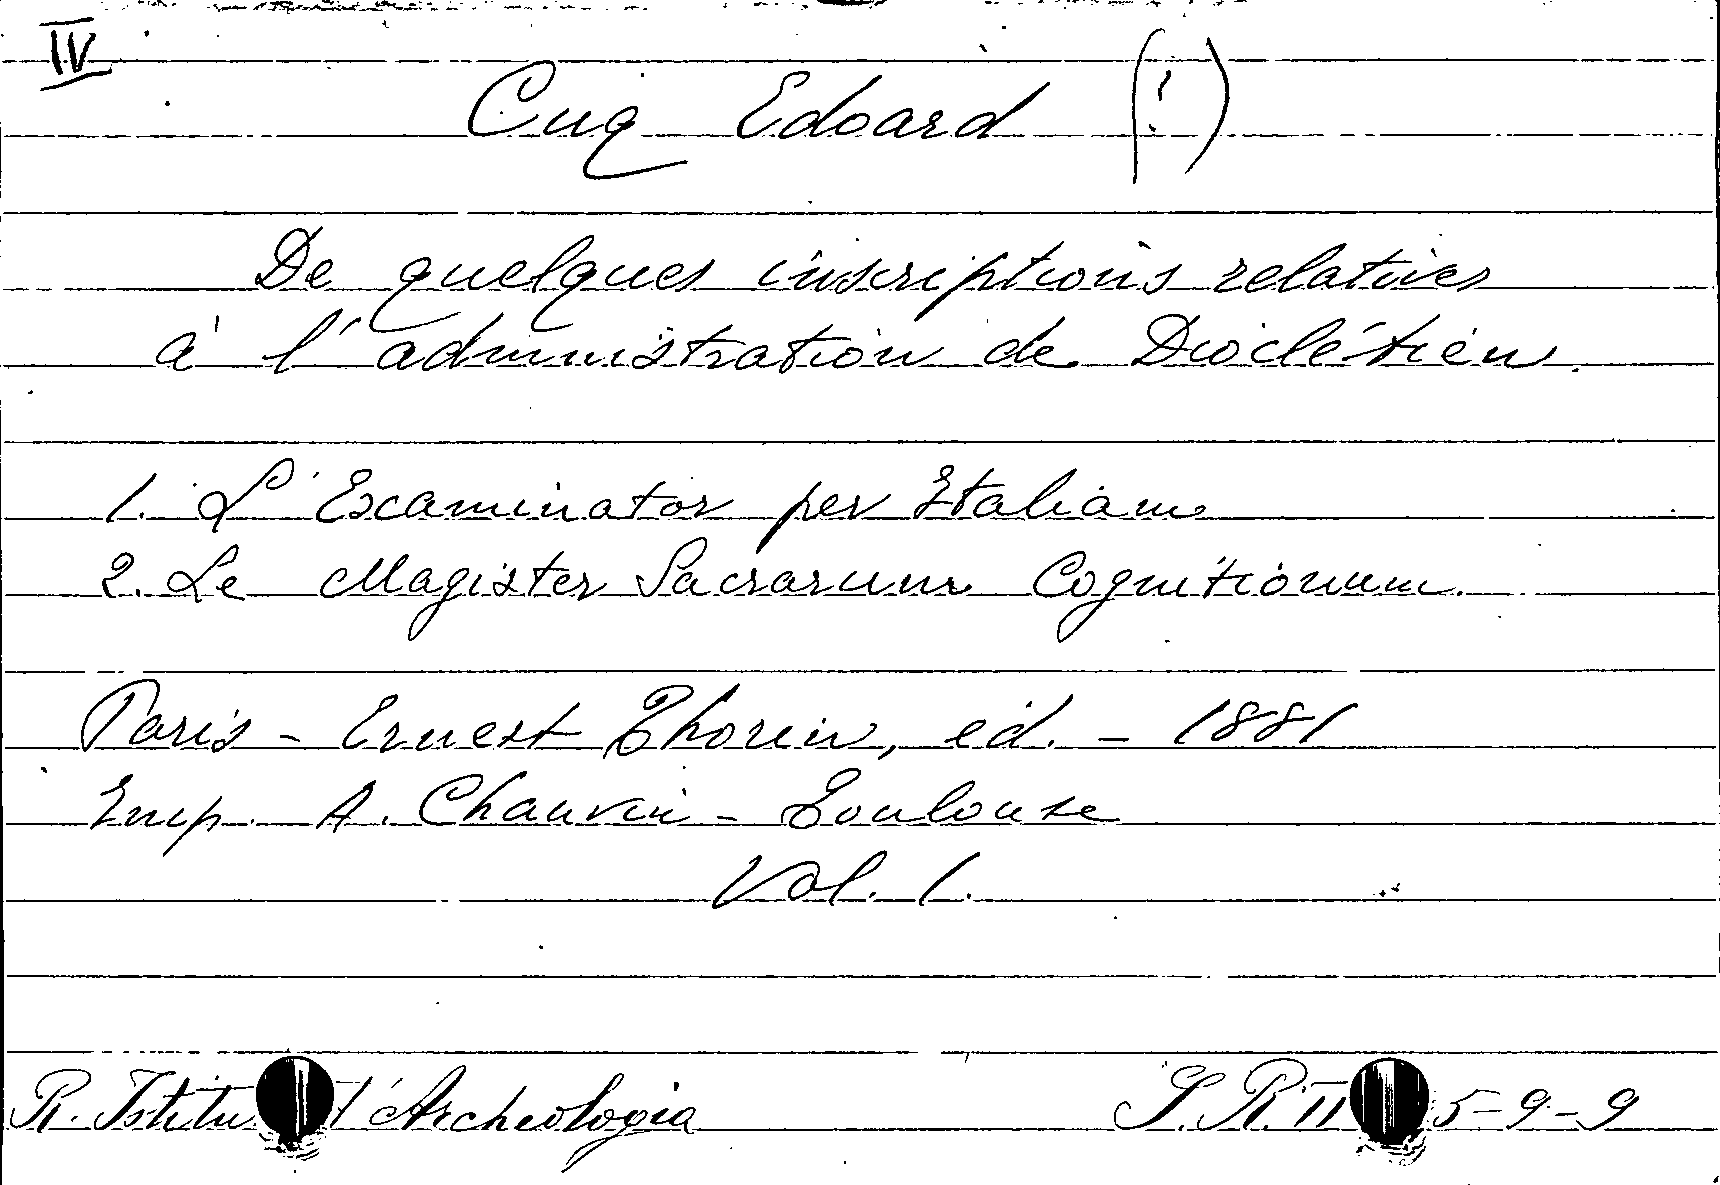 IV
Cuq Edoard (!)
De quelques inscriptions relatives
à l'administration de Dioclétien.
1. L'Examinator per Italiam
2. Le Magister Sacrarum Cognitionum.
Paris - Ernest Thorin, éd. - 1881
Imp. A. Chauvin - Toulouse
Vol. 1.
R. Istitu d'Archeologia S. R. II 5-9-9